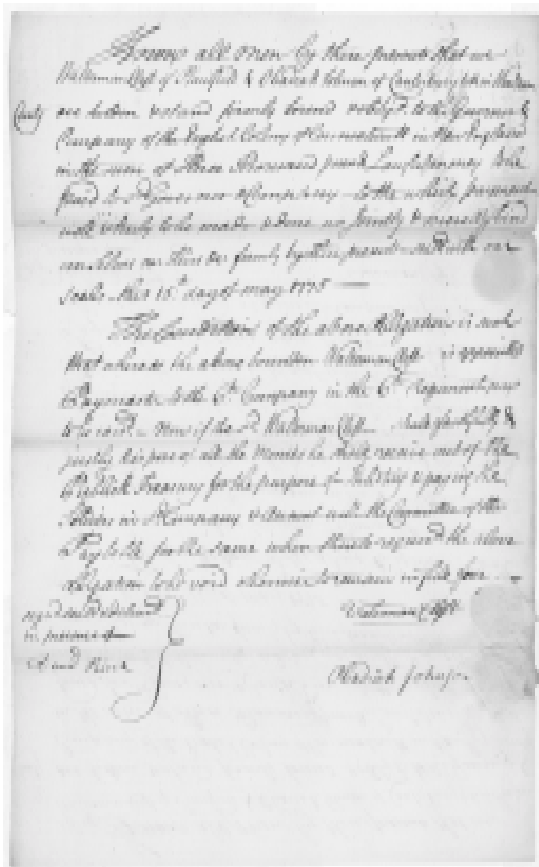 Know all men by these presents that we
Waterman Clift of Plainfield & Obadiah Johnson of Canterbury both in Windham
County
are holden and stand firmly bound unto the Governor &
Company of the English Colony of Connecticut in New England
in the sum of Three Thousand pounds Lawful money to be
paid to sd Governor & Company to the which payment
well & truly to be made & done we jointly & severally bind
ourselves our Heirs &c firmly by these presents sealed with our
seals this 15th day of may 1775
The Condition of the above obligation is such
that whereas the above bounden Waterman Clift is appointed
Paymaster to the 6th Company in the 6th Regiment now
to be raised Now if the sd Waterman Clift shall faithfully &
justly dispose of all the monies he shall receive out of the
Publick Treasury for the purpose of Inlisting & paying the
Soldiers in sd Company & account with the Committee of the
Pay table for the same when thereto required the above
obligation to be void otherwise to remain in full force
signed sealed & delivered
in presence of
Waterman Clift
Obadiah Johnson